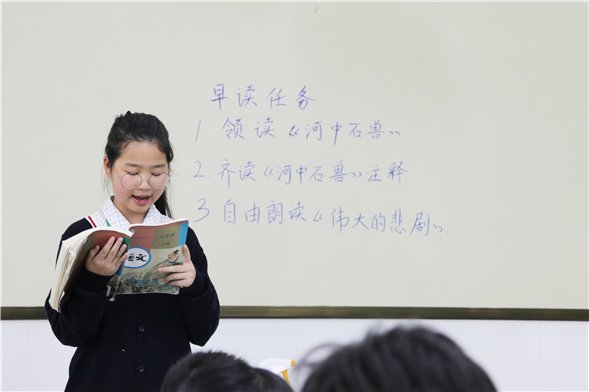 早读任务
1 领读《河中石兽》
2.齐读《河中石兽》注释
3.自由朗读《伟大的悲剧》
语文